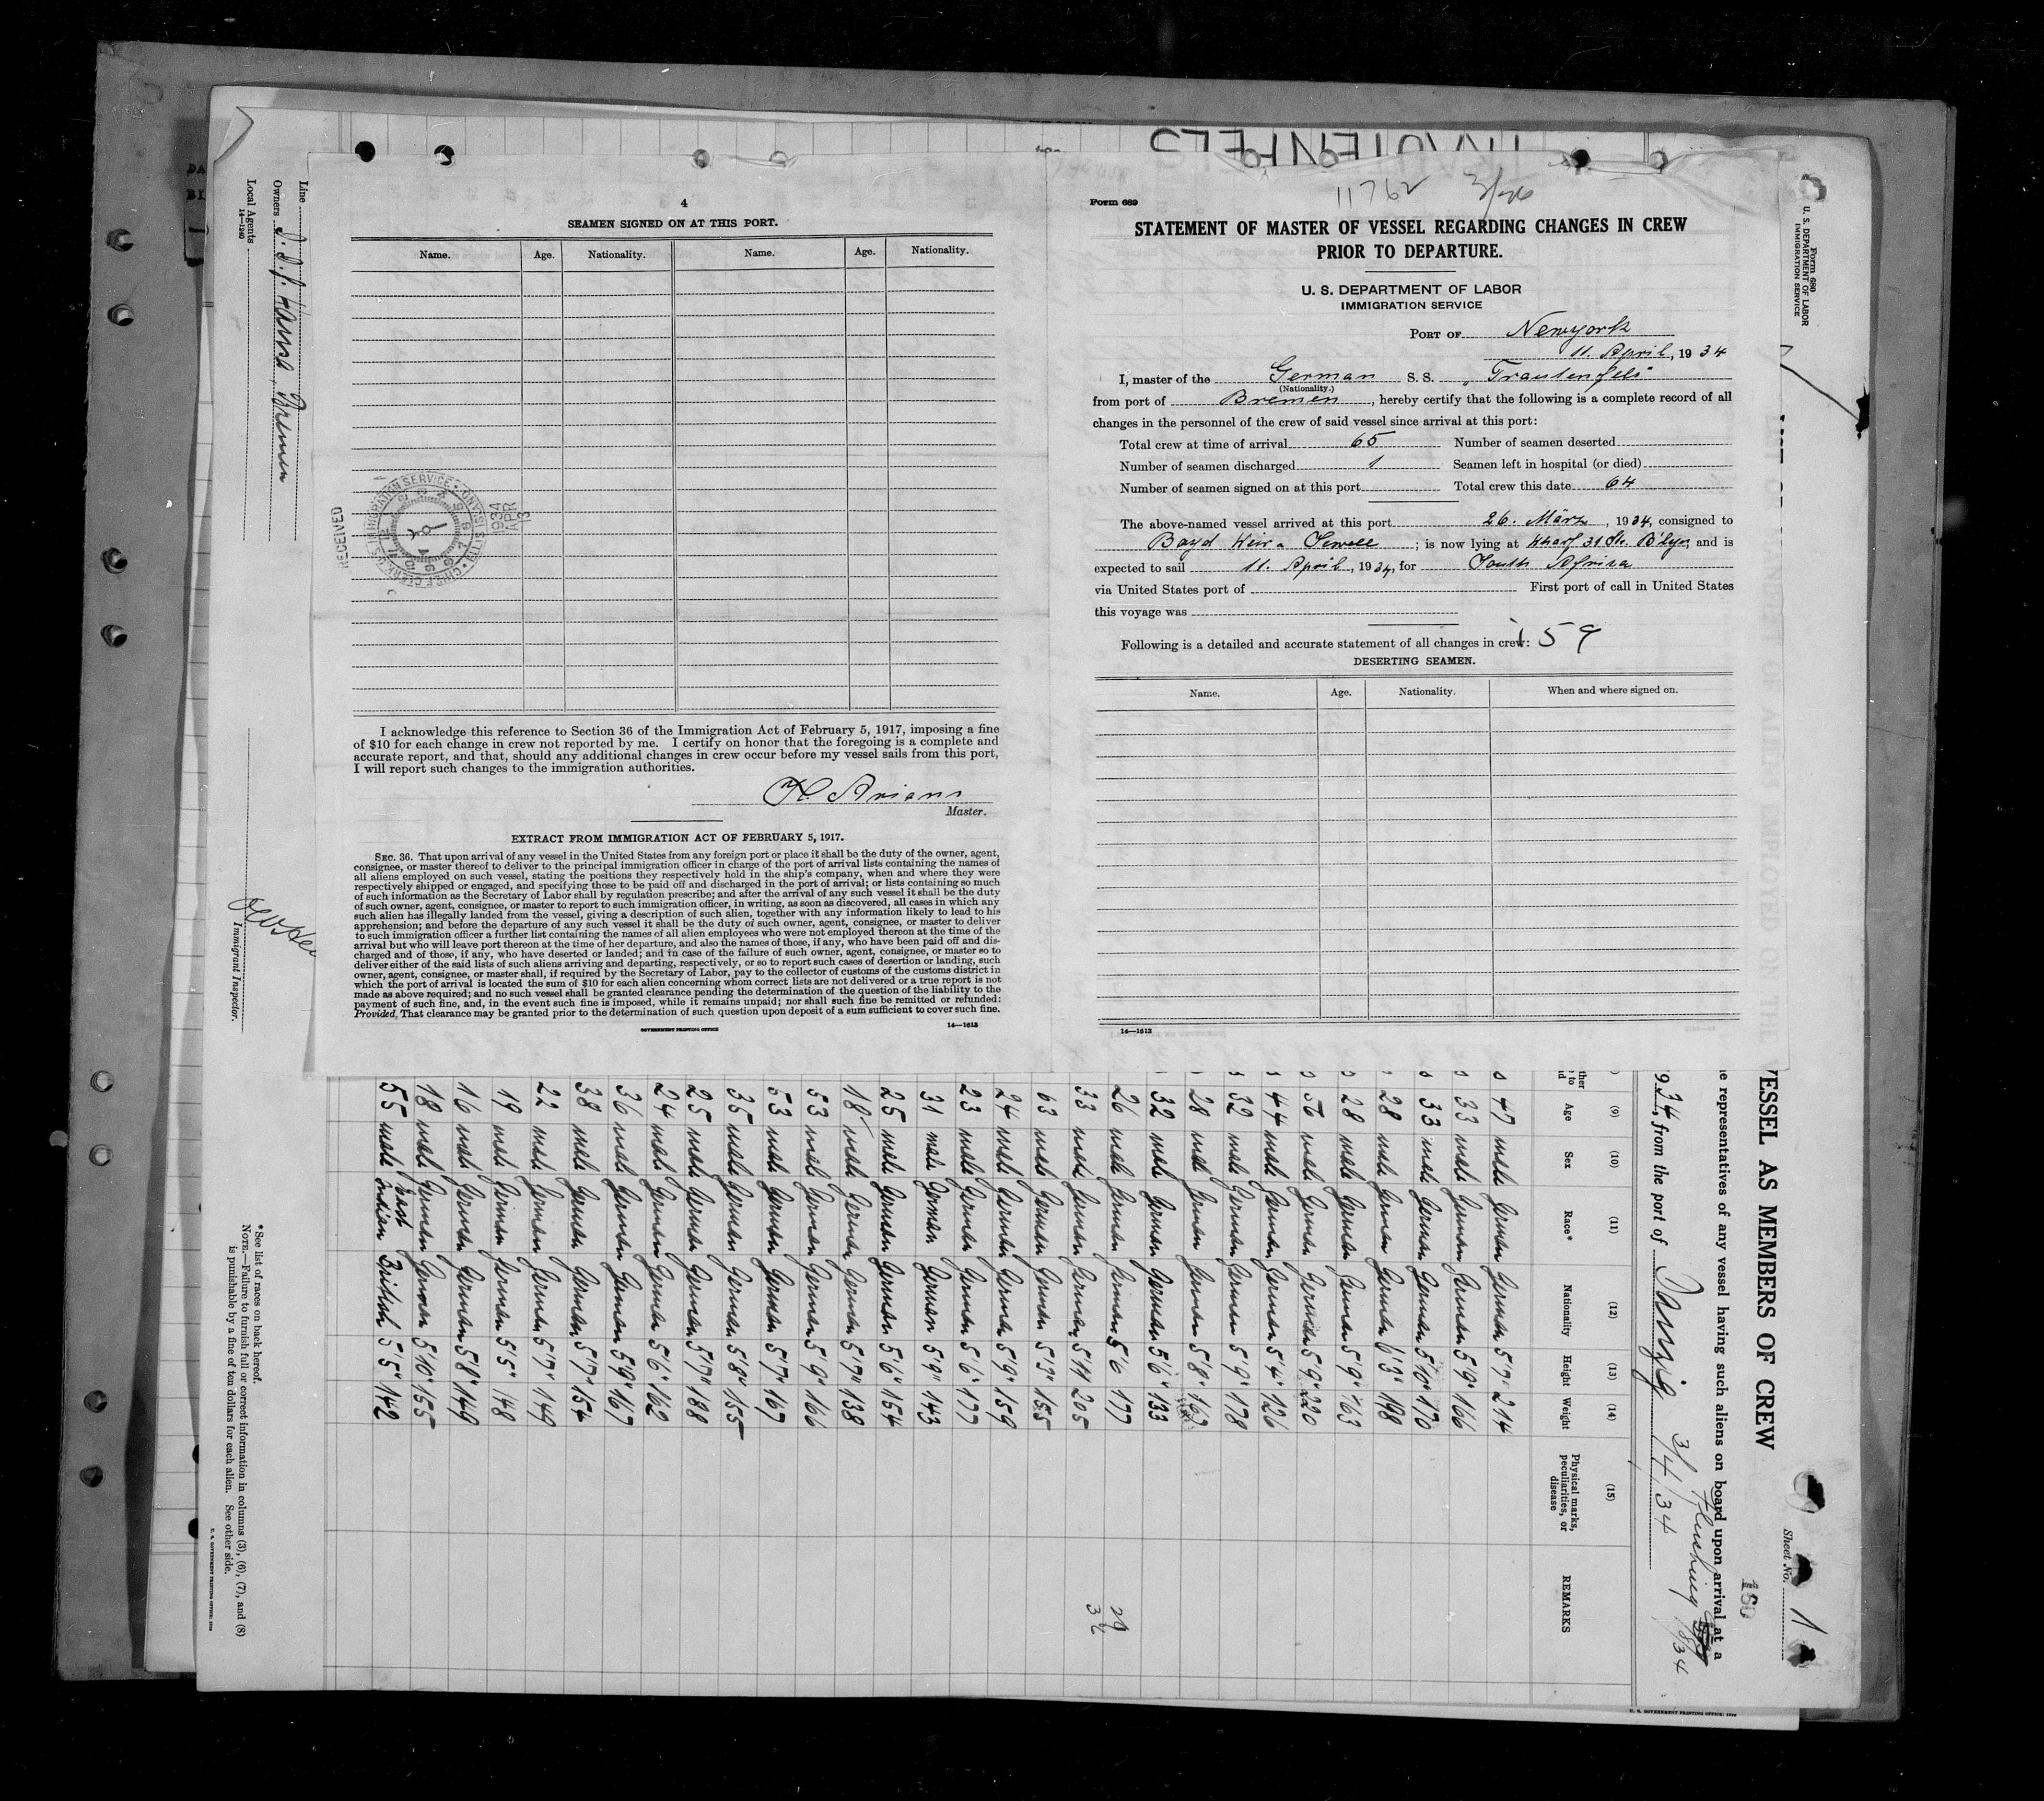 4
SEAMEN SIGNED ON AT THIS PORT.
Name. Age. Nationality. Name. Age. Nationality.
RECEIVED
CHIEF CLERK U.S. IMMIGRATION SERVICE ELLIS ISLAND
1934
APR
13
I acknowledge this reference to Section 36 of the Immigration Act of February 5, 1917, imposing a fine
of $10 for each change in crew not reported by me. I certify on honor that the foregoing is a complete and
accurate report, and that, should any additional changes in crew occur before my vessel sails from this port,
I will report such changes to the immigration authorities.
H. Arians
Master.
EXTRACT FROM IMMIGRATION ACT OF FEBRUARY 5, 1917.
SEC. 36. That upon arrival of any vessel in the United States from any foreign port or place it shall be the duty of the owner, agent,
consignee, or master thereof to deliver to the principal immigration officer in charge of the port of arrival lists containing the names of
all aliens employed on such vessel, stating the positions they respectively hold in the ship's company, when and where they were
respectively shipped or engaged, and specifying those to be paid off and discharged in the port of arrival; or lists containing so much
of such information as the Secretary of Labor shall by regulation prescribe; and after the arrival of any such vessel it shall be the duty
of such owner, agent, consignee, or master to report to such immigration officer, in writing, as soon as discovered, all cases in which any
such alien has illegally landed from the vessel, giving a description of such alien, together with any information likely to lead to his
apprehension; and before the departure of any such vessel it shall be the duty of such owner, agent, consignee, or master to deliver
to such immigration officer a further list containing the names of all alien employees who were not employed thereon at the time of the
arrival but who will leave port thereon at the time of her departure, and also the names of those, if any, who have been paid off and dis-
charged and of those, if any, who have deserted or landed; and in case of the failure of such owner, agent, consignee, or master so to
deliver either of the said lists of such aliens arriving and departing, respectively, or so to report such cases of desertion or landing, such
owner, agent, consignee, or master shall, if required by the Secretary of Labor, pay to the collector of customs of the customs district in
which the port of arrival is located the sum of $10 for each alien concerning whom correct lists are not delivered or a true report is not
made as above required; and no such vessel shall be granted clearance pending the determination of the question of the liability to the
payment of such fine, and, in the event such fine is imposed, while it remains unpaid; nor shall such fine be remitted or refunded:
Provided, That clearance may be granted prior to the determination of such question upon deposit of a sum sufficient to cover such fine.
GOVERNMENT PRINTING OFFICE 14—1613
11762 3/26
Form 689
STATEMENT OF MASTER OF VESSEL REGARDING CHANGES IN CREW
PRIOR TO DEPARTURE.
U. S. DEPARTMENT OF LABOR
IMMIGRATION SERVICE
PORT OF Newyork
11. April, 1934
I, master of the German S. S. "Trautenfels"
(Nationality.)
from port of Bremen, hereby certify that the following is a complete record of all
changes in the personnel of the crew of said vessel since arrival at this port:
Total crew at time of arrival 65 Number of seamen deserted
Number of seamen discharged 1 Seamen left in hospital (or died)
Number of seamen signed on at this port Total crew this date 64
The above-named vessel arrived at this port 26. März, 1934, consigned to
Boyd Weir & Sewell; is now lying at Wharf 31 Str. B'lyn; and is
expected to sail 11. April, 1934, for South Africa
via United States port of First port of call in United States
this voyage was
Following is a detailed and accurate statement of all changes in crew: 159
DESERTING SEAMEN.
Name. Age. Nationality. When and where signed on.
14—1613
TRAUTENFELS
Line
Owners D.D.G. Hansa, Bremen
Local Agents
14—1240
Immigrant Inspector.
*See list of races on back hereof.
NOTE.—Failure to furnish full or correct information in columns (3), (6), (7), and (8)
is punishable by a fine of ten dollars for each alien. See other side.
U. S. GOVERNMENT PRINTING OFFICE
Form 680
U. S. DEPARTMENT OF LABOR
IMMIGRATION SERVICE
Sheet No. 1
160
VESSEL AS MEMBERS OF CREW
representatives of any vessel having such aliens on board upon arrival at a
934, from the port of Danzig 3/4/34
Flushing
(9) (10) (11) (12) (13) (14) (15)
Age Sex Race* Nationality Height Weight Physical marks, peculiarities, or disease REMARKS
47 male German German 5'7" 214
33 male German German 5'9" 166
33 male German German 5'10" 170
28 male German German 6'3" 198
28 male German German 5'9" 163
56 male German German 5'9" 220
44 male German German 5'4" 126
32 male German German 5'9" 178
28 male German German 5'8" 162
32 male German German 5'6" 133
26 male German German 5'6 177
33 male German German 5'11 205
63 male German German 5'3" 155
24 male German German 5'9" 159
23 male German German 5'6" 177
31 male German German 5'9" 143
25 male German German 5'6" 154
18 male German German 5'7" 138
53 male German German 5'9" 166
53 male German German 5'7" 167
35 male German German 5'8" 155
25 male German German 5'7" 188
24 male German German 5'6" 162
36 male German German 5'9" 167
38 male German German 5'7" 154
22 male German German 5'7" 149
19 male German German 5'5" 148
16 male German German 5'8" 149
18 male German German 5'10" 155
55 male East Indian British 5'5" 142